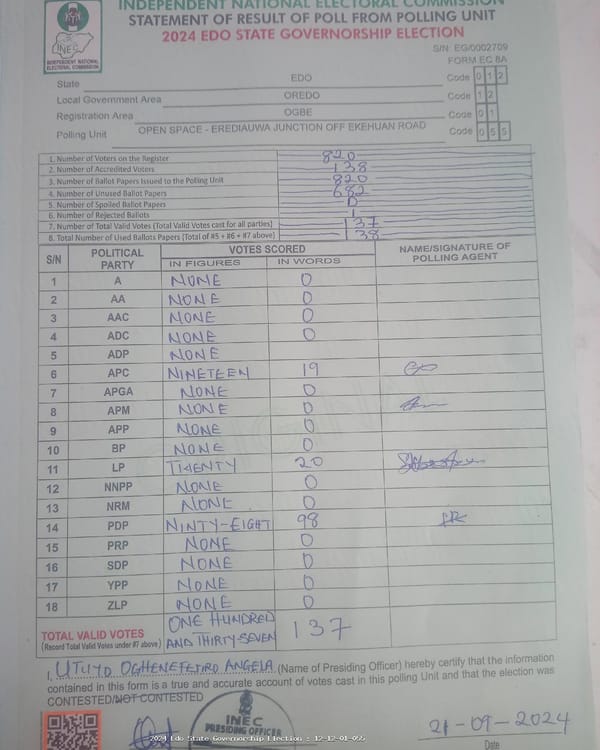 INDEPENDENT NATIONAL ELECTORAL COMMISSION
STATEMENT OF RESULT OF POLL FROM POLLING UNIT
2024 EDO STATE GOVERNORSHIP ELECTION
INEC
INDEPENDENT NATIONAL
ELECTORAL COMMISSION
S/N EG/0002709
FORM EC 8A
State EDO Code 0 1 2
Local Government Area OREDO Code 1 2
Registration Area OGBE Code 0 1
Polling Unit OPEN SPACE - EREDIAUWA JUNCTION OFF EKEHUAN ROAD Code 0 5 5
1. Number of Voters on the Register 820
2. Number of Accredited Voters 138
3. Number of Ballot Papers Issued to the Polling Unit 820
4. Number of Unused Ballot Papers 682
5. Number of Spoiled Ballot Papers 0
6. Number of Rejected Ballots 1
7. Number of Total Valid Votes (Total Valid Votes cast for all parties) 137
8. Total Number of Used Ballots Papers (Total of #5 + #6 + #7 above) 138
S/N POLITICAL PARTY VOTES SCORED NAME/SIGNATURE OF POLLING AGENT
IN FIGURES IN WORDS
1 A NONE 0
2 AA NONE 0
3 AAC NONE 0
4 ADC NONE 0
5 ADP NONE
6 APC NINETEEN 19
7 APGA NONE 0
8 APM NONE 0
9 APP NONE 0
10 BP NONE 0
11 LP TWENTY 20
12 NNPP NONE 0
13 NRM NONE 0
14 PDP NINTY-EIGHT 98
15 PRP NONE 0
16 SDP NONE 0
17 YPP NONE 0
18 ZLP NONE 0
TOTAL VALID VOTES ONE HUNDRED AND THIRTY SEVEN 137
(Record Total Valid Votes under #7 above)
I, UTUYO OGHENEFEJIRO ANGELA (Name of Presiding Officer) hereby certify that the information
contained in this form is a true and accurate account of votes cast in this polling Unit and that the election was
CONTESTED/NOT CONTESTED
INEC
PRESIDING OFFICER
21-09-2024
Date
2024 Edo State Governorship Election : 12-12-01-055